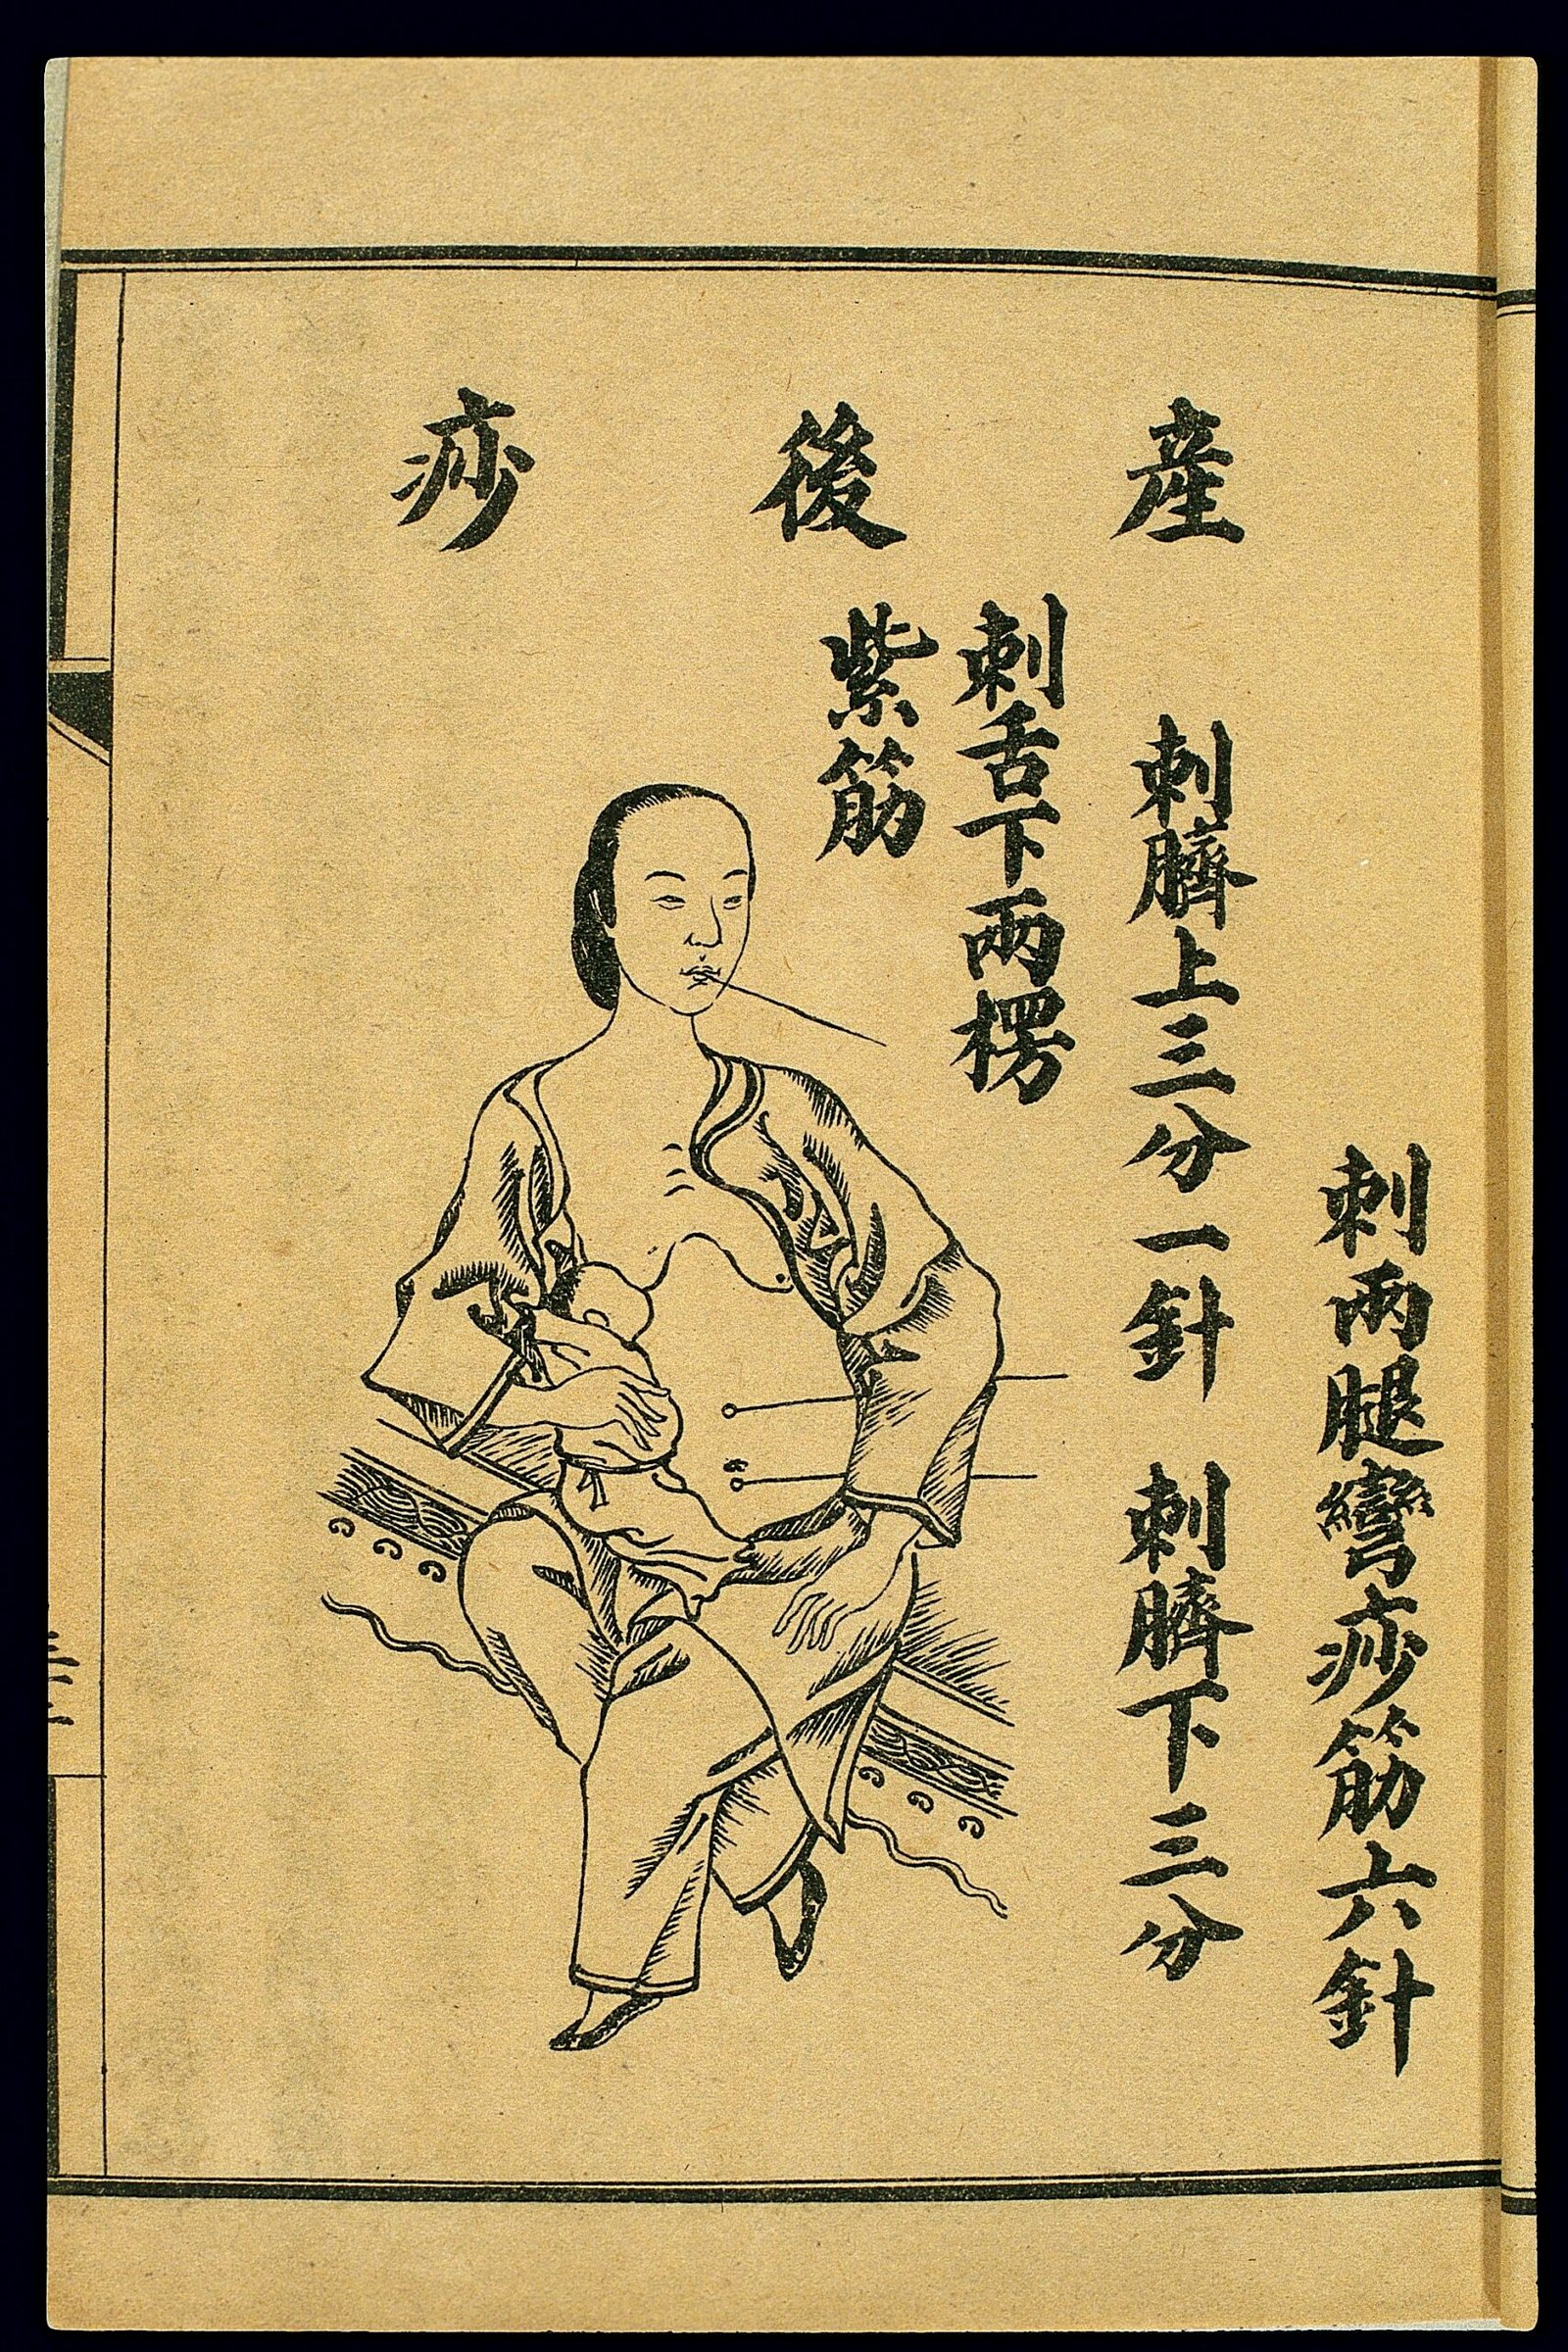 産後痧
刺兩腿彎痧筋六針
刺臍上三分一針 刺臍下三分
刺舌下兩楞
紫筋